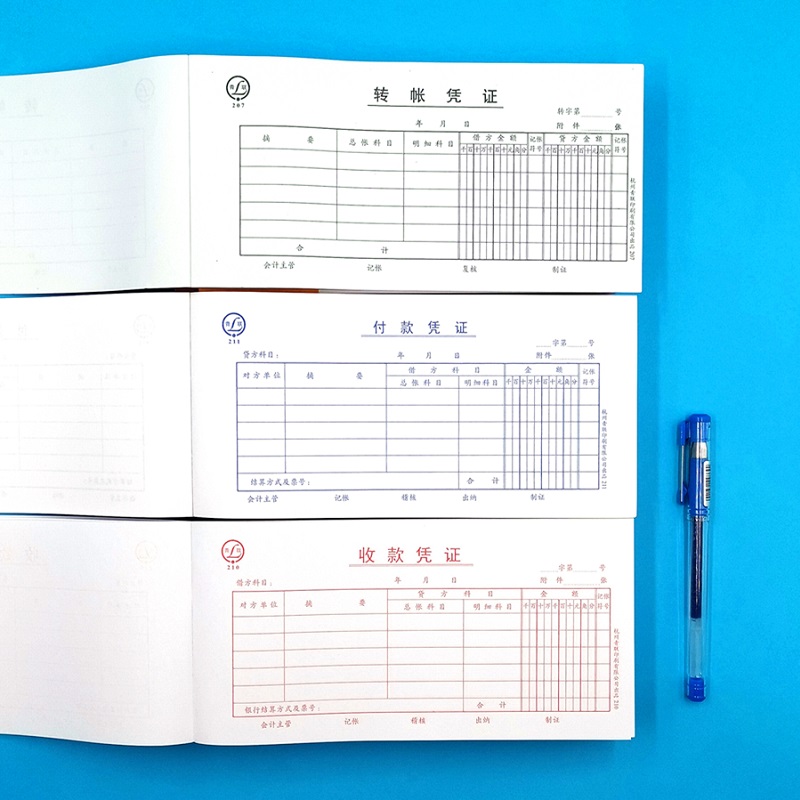 青联
207
转帐凭证
转字第 号
年 月 日
附 件 张
摘 要 总帐科目 明细科目 借方金额 记帐符号 贷方金额 记帐符号
千百十万千百十元角分 千百十万千百十元角分
合 计
会计主管 记帐 复核 制证
杭州青联印刷有限公司出品 207
青联
211
付款凭证
字第 号
贷方科目： 年 月 日 附件 张
对方单位 摘 要 借 方 科 目 金 额 记帐符号
总帐科目 明细科目 千百十万千百十元角分
结算方式及票号： 合 计
会计主管 记帐 稽核 出纳 制证
杭州青联印刷有限公司出品 211
青联
210
收款凭证
字第 号
借方科目： 年 月 日 附 件 张
对方单位 摘 要 贷 方 科 目 金 额 记帐符号
总帐科目 明细科目 千百十万千百十元角分
银行结算方式及票号： 合 计
会计主管 记帐 稽核 出纳 制证
杭州青联印刷有限公司出品 210